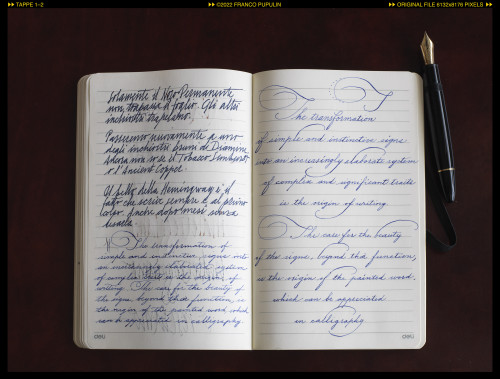 TAPPE 1-2
©2022 FRANCO PUPULIN
ORIGINAL FILE 6132x8176 PIXELS
Solamente il Noir Permanente
non trapassa il foglio. Gli altri
inchiostri trapelano.
Passeremo nuovamente a uno
degli inchiostri bruni di Diamine.
Adora non so se il Tobacco Sunburst
o l'Ancient Copper.
Il bello della Hemingway è il
fatto che scrive sempre e al primo
colpo. Anche dopo mesi senza
usarla.
The transformation of
simple and instinctive signs into
an increasingly elaborated system
of complex signs is the origin of
writing. The care for the beauty of
the signs, beyond their function, is
the origin of the painted word which
can be appreciated in calligraphy.
The transformation
of simple and instinctive signs
into an increasingly elaborate system
of complex and significant tracts
is the origin of writing
The care for the beauty
of the signs, beyond their function,
is the origin of the painted word,
which can be appreciated
in calligraphy